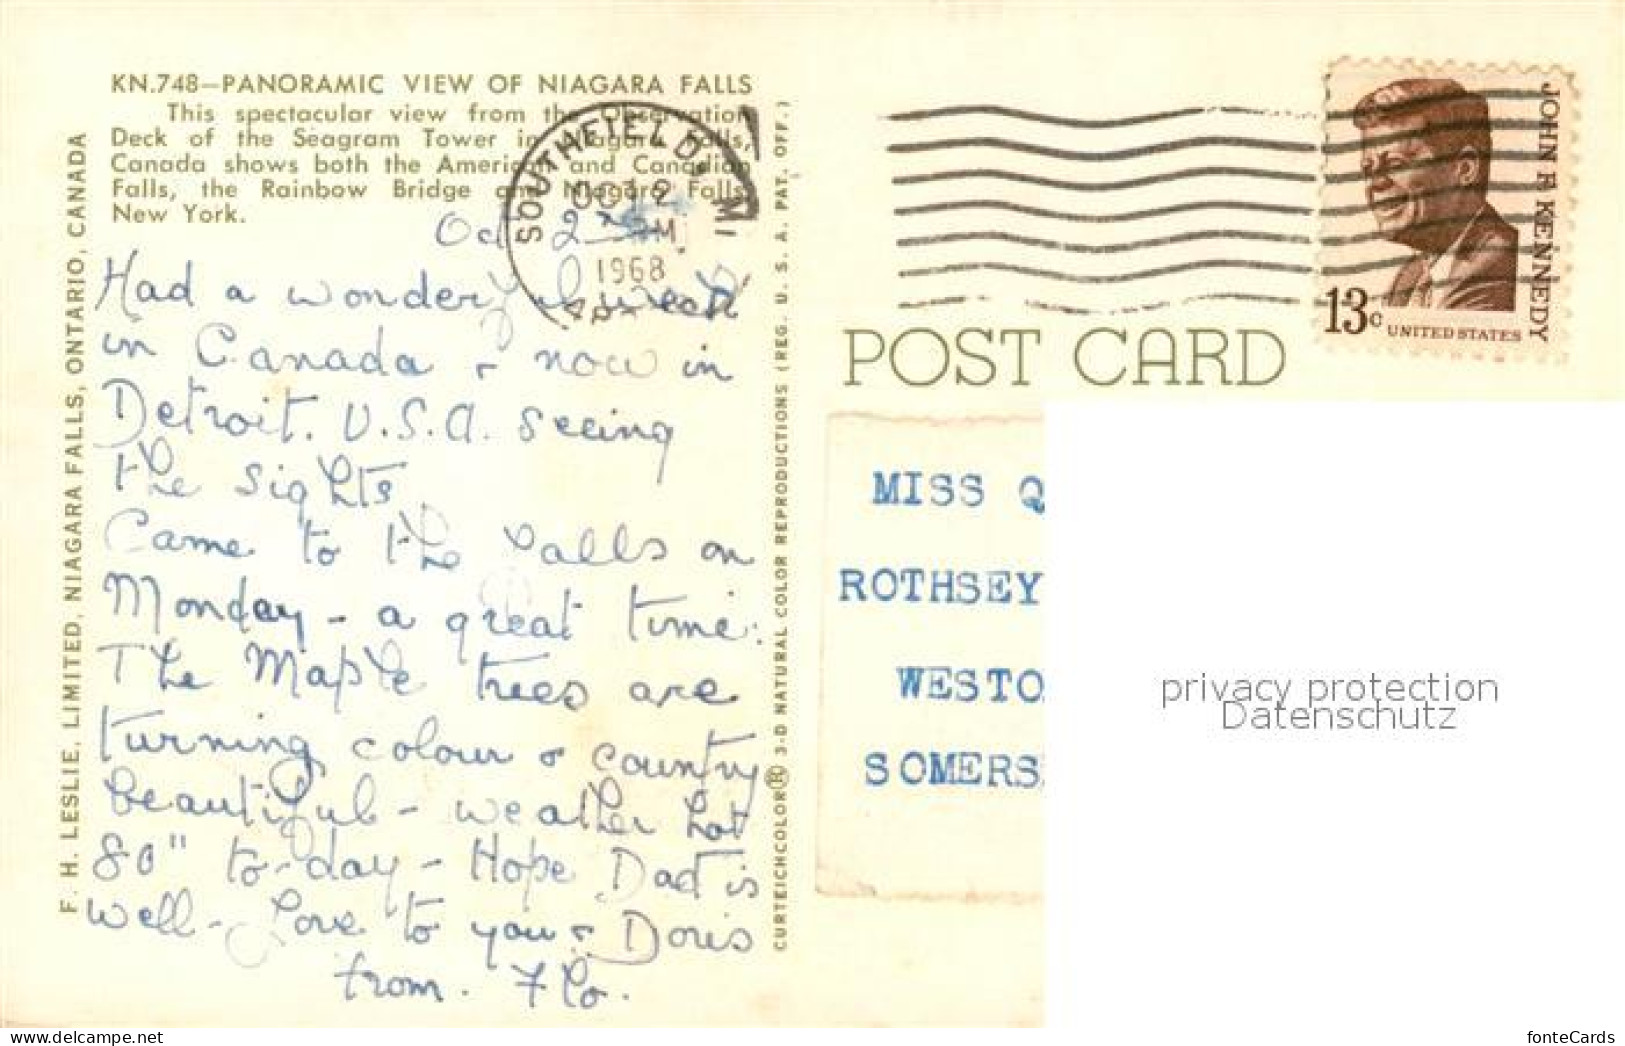 KN.748—PANORAMIC VIEW OF NIAGARA FALLS
This spectacular view from the Observation
Deck of the Seagram Tower in Niagara Falls,
Canada shows both the American and Canadian
Falls, the Rainbow Bridge and Niagara Falls,
New York.
F. H. LESLIE, LIMITED, NIAGARA FALLS, ONTARIO, CANADA
Oct 2
Had a wonderful week
in Canada & now in
Detroit. U.S.A. seeing
the sights
Came to the Falls on
Monday - a great time.
The Maple trees are
turning colour & country
beautiful - weather hot
80" to-day - Hope Dad is
well - Love to you & Doris
from. Flo.
CURTEICHCOLOR® 3-D NATURAL COLOR REPRODUCTIONS (REG. U. S. A. PAT. OFF.)
SOUTHFIELD MI
OCT 2
PM
1968
JOHN F. KENNEDY
13c UNITED STATES
POST CARD
MISS Q
ROTHSEY
WESTO
SOMERS
privacy protection
Datenschutz
www.delcampe.net
fonteCards